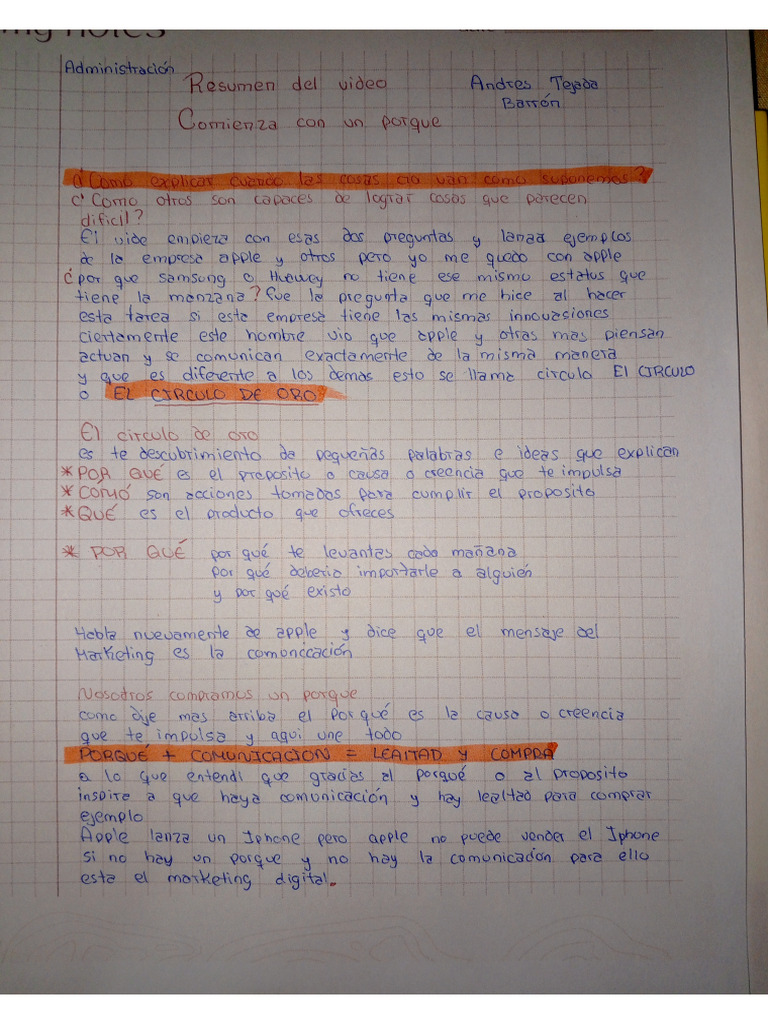 my notes
Administración
Resumen del video
Andres Tejada
Barrón
Comienza con un porque
¿Como explicar cuando las cosas no van como suponemos?
¿Como otros son capaces de lograr cosas que parecen
dificil?
El vide empieza con esas dos preguntas y lanza ejemplos
de la empresa apple y otros pero yo me quedo con apple
¿por que samsung o Huawey no tiene ese mismo estatus que
tiene la manzana? fue la pregunta que me hice al hacer
esta tarea si esta empresa tiene las mismas innovasiones
ciertamente este hombre vio que apple y otras mas piensan
actuan y se comunican exactamente de la misma manera
y que es diferente a los demas esto se llama circulo El CIRCULO
o EL CIRCULO DE ORO
El circulo de oro
es te descubrimiento da pequeñas palabras e ideas que explican
* POR QUÉ es el proposito o causa o creencia que te impulsa
* CÓMO son acciones tomadas para cumplir el proposito
* QUÉ es el producto que ofreces
* POR QUÉ por qué te levantas cada mañana
por qué deberia importarle a alguién
y por qué existo
Habla nuevamente de apple y dice que el mensaje del
Marketing es la comonicación
Nosotros compramos un porque
como dije mas arriba el por qué es la causa o creencia
que te impulsa y aqui une todo
PORQUÉ + COMUNICACION = LEALTAD y COMPRA
a lo que entendi que gracias al porqué o al proposito
inspire a que haya comunicación y hay lealtad para comprar
ejemplo
Apple lanza un Iphone pero apple no puede vender el Iphone
si no hay un porque y no hay la comunicación para ello
esta el marketing digital.